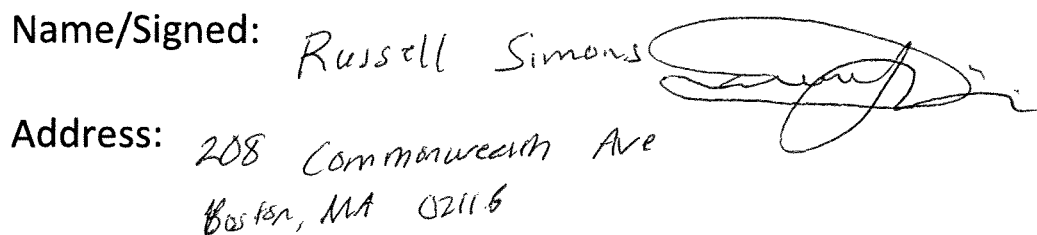 Name/Signed: Russell Simons
Address: 208 Commonwealth Ave
Boston, MA 02116